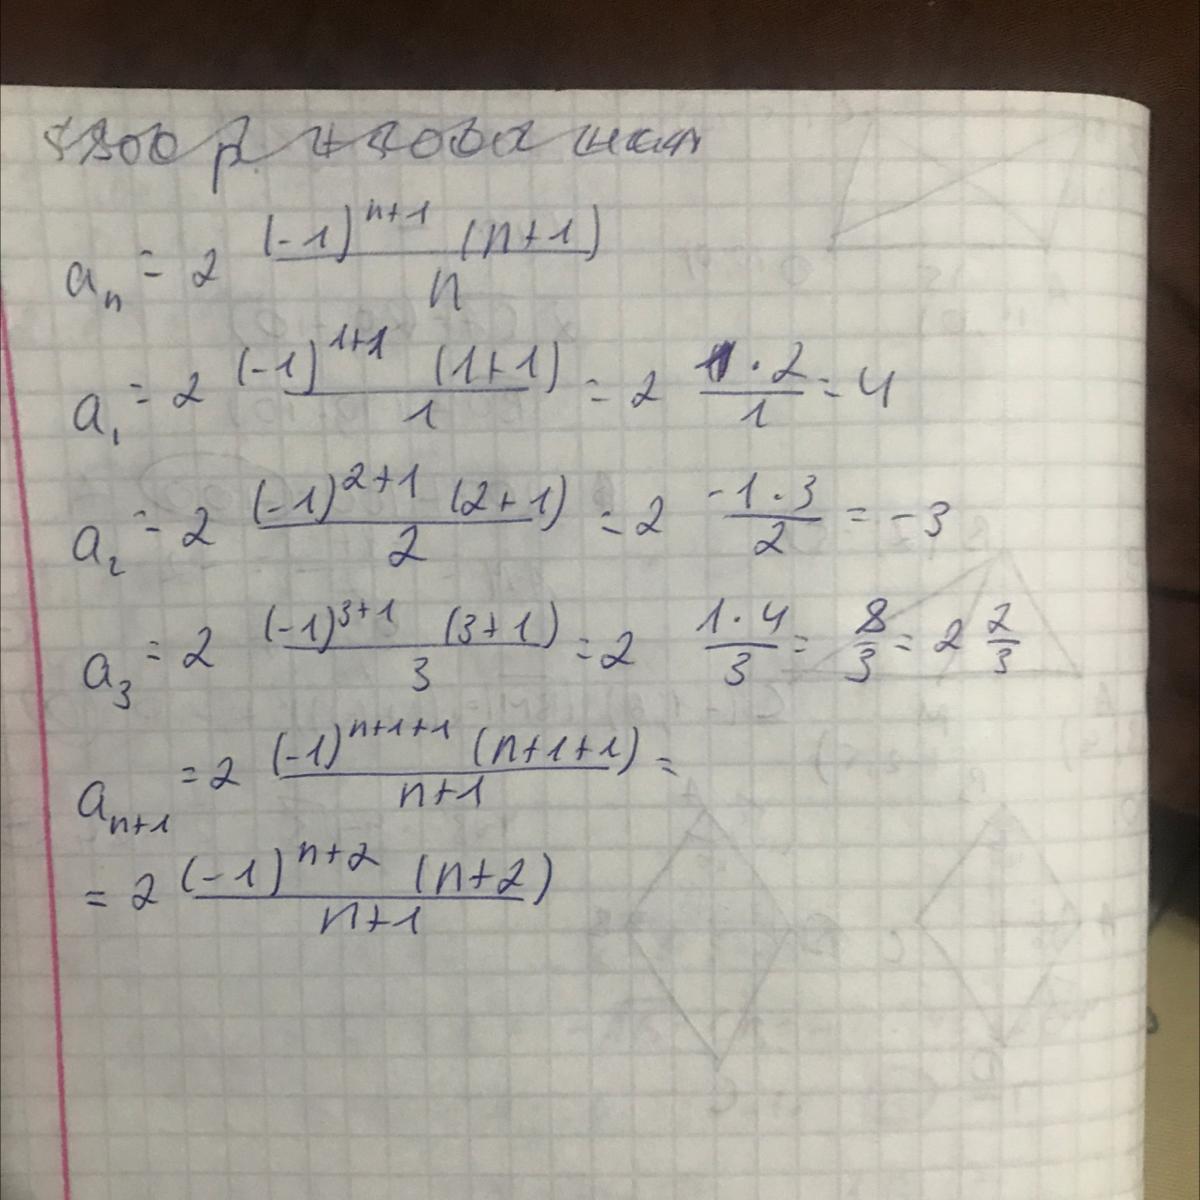 a_n = 2 \frac{(-1)^{n+1} (n+1)}{n}
a_1 = 2 \frac{(-1)^{1+1} (1+1)}{1} = 2 \frac{1 \cdot 2}{1} = 4
a_2 = 2 \frac{(-1)^{2+1} (2+1)}{2} = 2 \frac{-1 \cdot 3}{2} = -3
a_3 = 2 \frac{(-1)^{3+1} (3+1)}{3} = 2 \frac{1 \cdot 4}{3} = \frac{8}{3} = 2 \frac{2}{3}
a_{n+1} = 2 \frac{(-1)^{n+1+1} (n+1+1)}{n+1} =
= 2 \frac{(-1)^{n+2} (n+2)}{n+1}